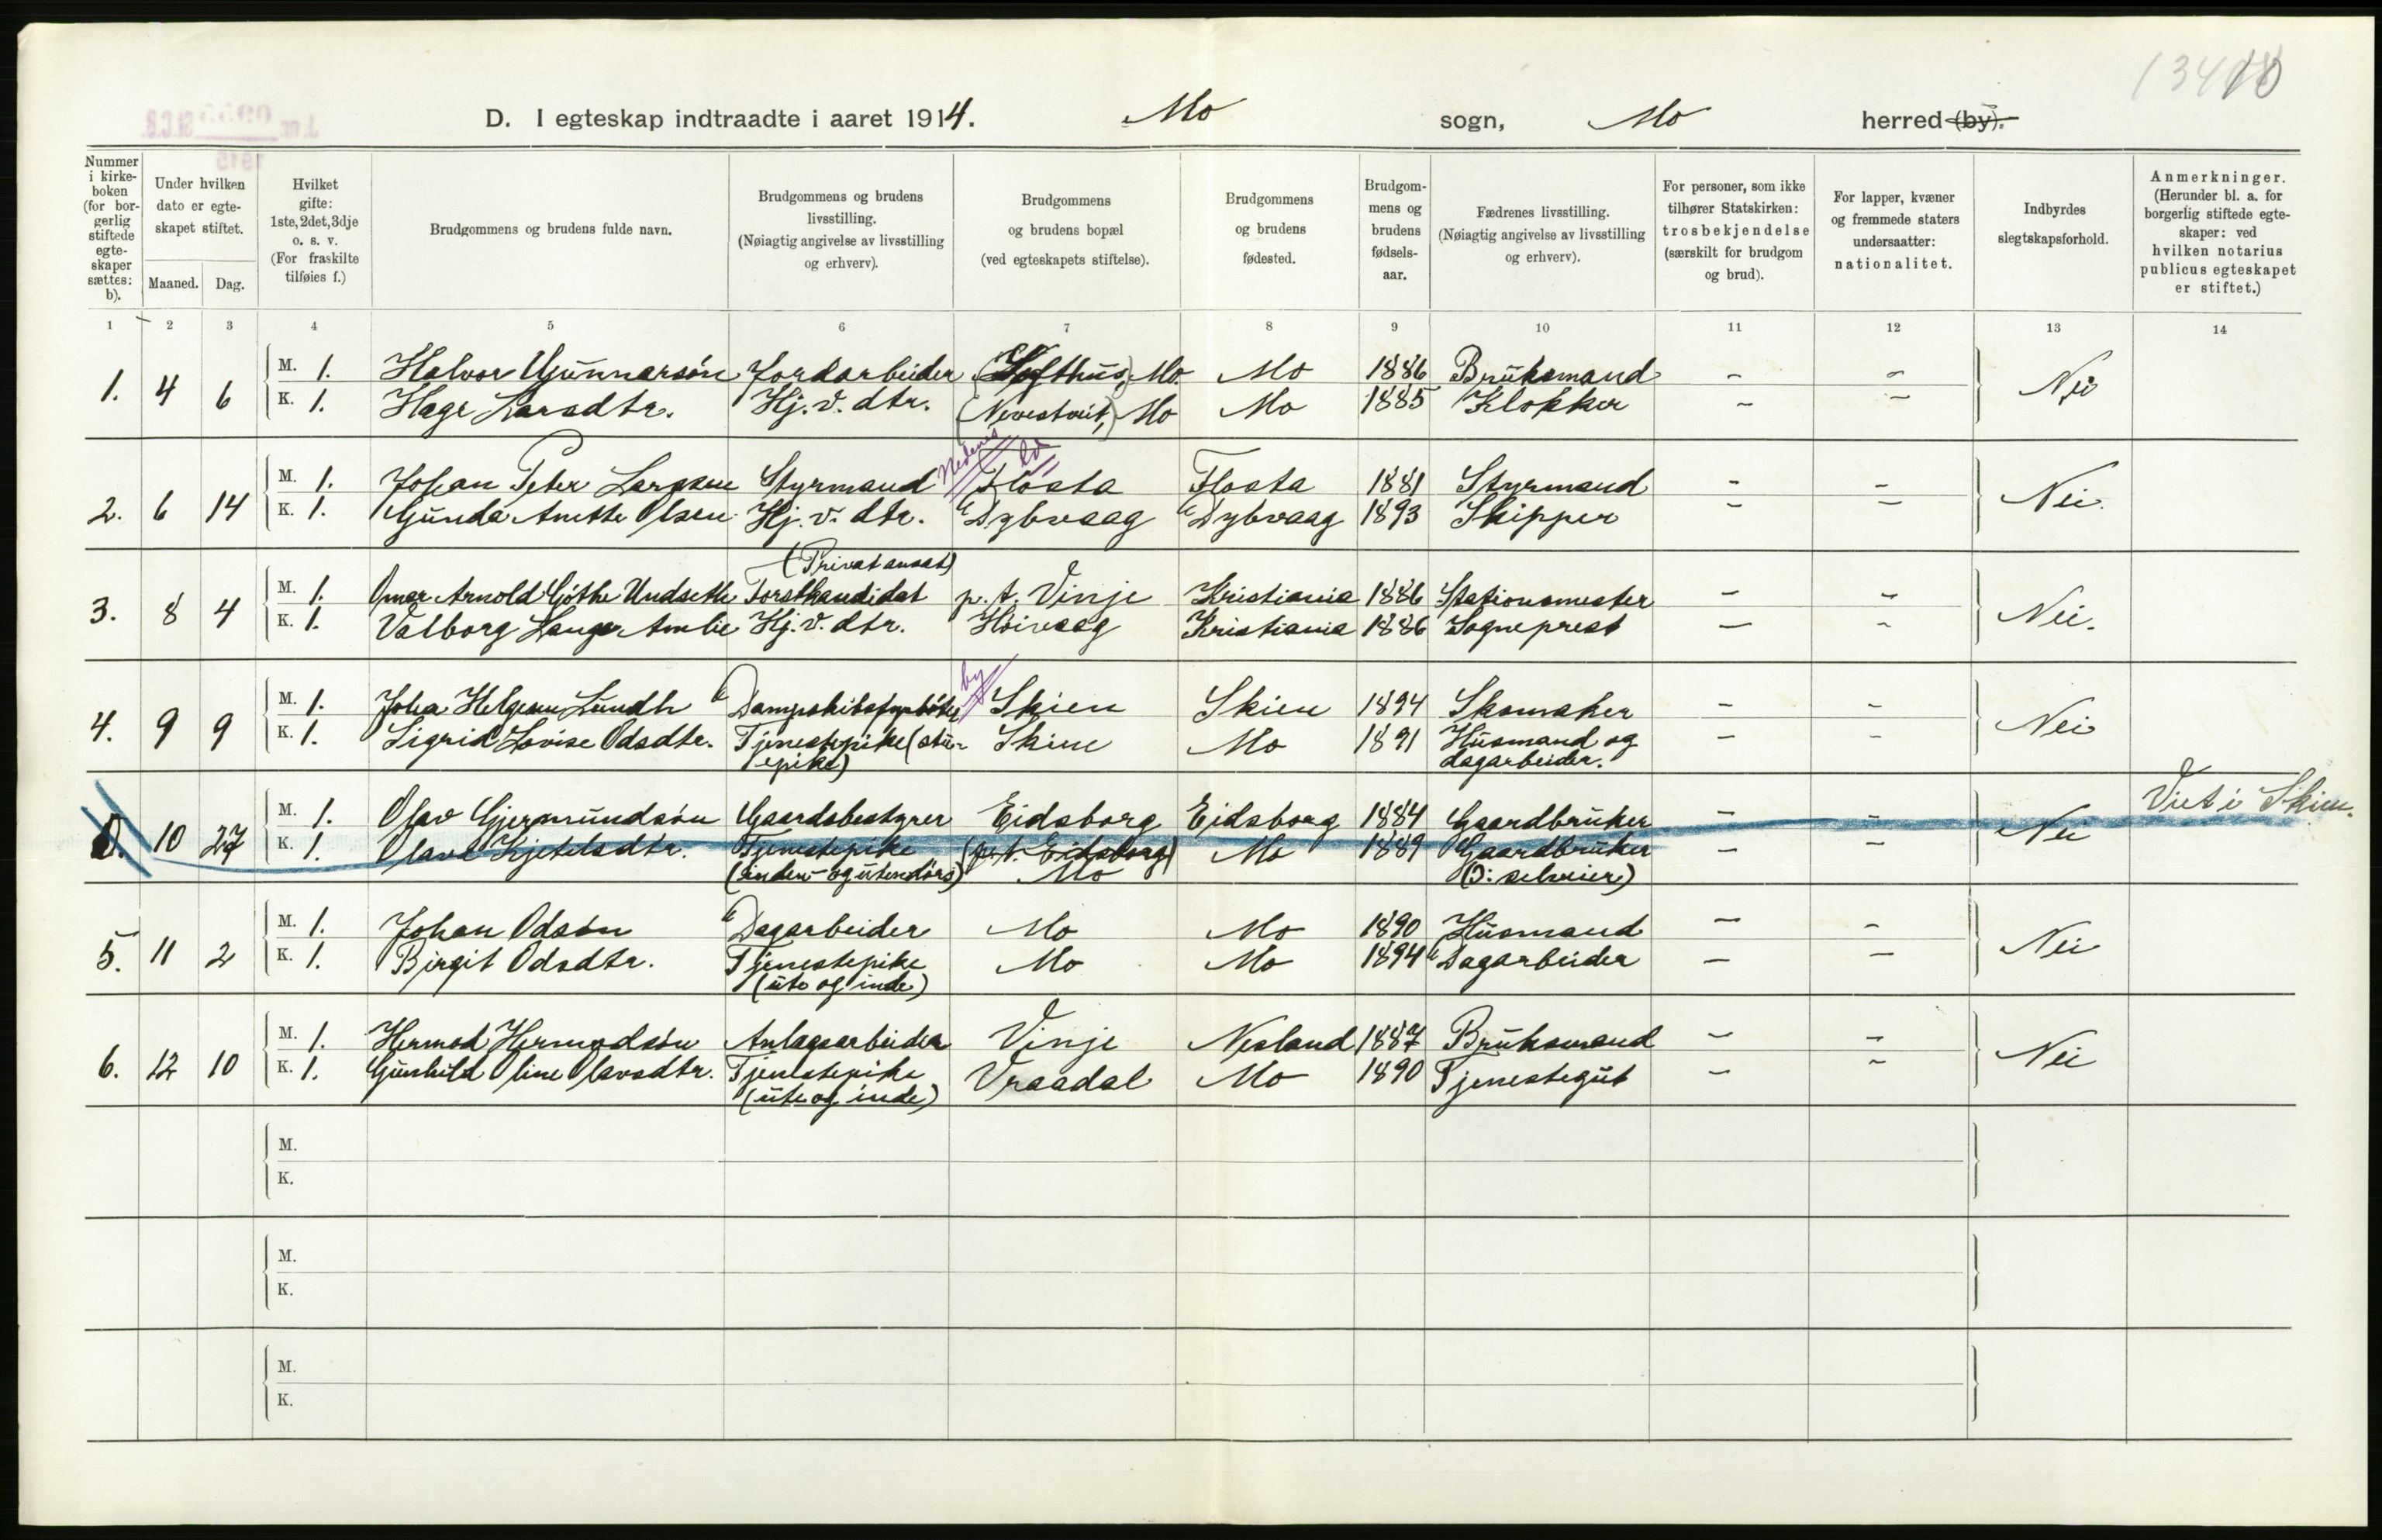 13410
D. I egteskap indtraadte i aaret 1914. Mo sogn, Mo herred (by).
Nummer i kirkeboken (for borgerlig stiftede egteskaper sættes: b).
Under hvilken dato er egteskapet stiftet.
Maaned. Dag.
Hvilket gifte: 1ste, 2det, 3dje o. s. v. (For fraskilte tilføies f.)
Brudgommens og brudens fulde navn.
Brudgommens og brudens livsstilling. (Nøiagtig angivelse av livsstilling og erhverv).
Brudgommens og brudens bopæl (ved egteskapets stiftelse).
Brudgommens og brudens fødested.
Brudgommens og brudens fødselsaar.
Fædrenes livsstilling. (Nøiagtig angivelse av livsstilling og erhverv).
For personer, som ikke tilhører Statskirken: trosbekjendelse (særskilt for brudgom og brud).
For lapper, kvæner og fremmede staters undersaatter: nationalitet.
Indbyrdes slegtskapsforhold.
Anmerkninger. (Herunder bl. a. for borgerlig stiftede egteskaper: ved hvilken notarius publicus egteskapet er stiftet.)
1 2 3 4 5 6 7 8 9 10 11 12 13 14
1. 4 6 M. 1. Halvor Gunnarsøn Jordarbeider (Lofthus,) Mo. Mo 1886 Bruksmand - - Nei
K. 1. Hæge Larsdtr. Hj. v. dtr. (Nevestveit,) Mo Mo 1885 Klokker - -
Nedenes
2. 6 14 M. 1. Johan Peter Larssen Styrmand Flosta Flosta 1881 Styrmand - - Nei.
K. 1. Gunda Anette Olsen Hj. v. dtr. Dybvaag Dybvaag 1893 Skipper - -
(Privat ansat)
3. 8 4 M. 1. Omar Arnold Gøthe Undseth Forstkandidat p. t. Vinje Kristiania 1886 Stationsmester - - Nei.
K. 1. Valborg Lange Amlie Hj. v. dtr. Høivaag Kristiania 1886 Sogneprest - -
by
4. 9 9 M. 1. Johan Helgesen Lundh Dampskibsfyrbøter Skien Skien 1894 Skomaker - - Nei
K. 1. Sigrid Lovise Odsdtr. Tjenestepike (stue- Skien Mo 1891 Husmand og - -
pike) dagarbeider.
Viet i Skien.
10 27 M. 1. Olav Gjermundsøn Gaardsbestyrer Eidsborg Eidsborg 1884 Gaardbruker - - Nei
K. 1. Olava Kjetelsdtr. Tjenestepike (p. t. Eidsborg) Mo 1889 Gaardbruker - -
(inden- og utendørs) Mo (ɔ: selveier)
5. 11 2 M. 1. Johan Odsøn Dagarbeider Mo Mo 1890 Husmand - - Nei
K. 1. Birgit Odsdtr. Tjenestepike Mo Mo 1894 Dagarbeider - -
(ute og inde)
6. 12 10 M. 1. Hermod Hermodsøn Anlægsarbeider Vinje Nesland 1887 Bruksmand - - Nei
K. 1. Gunhild Oline Olavsdtr. Tjenestepike Vraadal Mo 1890 Tjenestegut - -
(ute og inde)
M.
K.
M.
K.
M.
K.